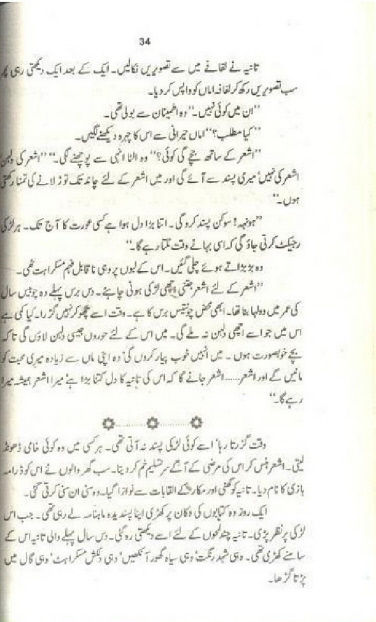 34
تانیہ نے لفافے میں سے تصویریں نکالیں۔ ایک کے بعد ایک دیکھتی رہی پھر
سب تصویریں رکھ کر لفافہ اماں کو واپس کر دیا۔
”ان میں کوئی نہیں۔“ وہ اطمینان سے بولی تھی۔
”کیا مطلب؟“ اماں حیرانی سے اس کا چہرہ دیکھنے لگیں۔
”اشعر کے ساتھ جچے گی کوئی؟“ وہ الٹا انہی سے پوچھنے لگی۔ ”اشعر کی دلہن
اشعر کی نہیں میری پسند سے آئے گی اور میں اشعر کے لئے چاند تک توڑ لانے کی تمنا رکھتی
ہوں۔“
”ہونہہ! سوکن پسند کرو گی۔ اتنا بڑا دل ہوا ہے کسی عورت کا آج تک۔ ہر لڑکی
رجیکٹ کرتی جاؤ گی کہ اسی بہانے وقت ٹلتا رہے گا۔“
وہ بڑبڑاتے ہوئے چلی گئیں۔ اس کے لبوں پر وہی ناقابل فہم مسکراہٹ تھی۔
”اشعر کے لئے اشعر جتنی اچھی لڑکی ہونی چاہئے۔ دس برس پہلے وہ چوبیس سال
کی عمر میں دولہا بنا تھا۔ ابھی محض چونتیس برس کا ہے۔ وقت اسے چھو کر نہیں گزرا۔ کیا کمی ہے
اس میں جو اسے اچھی دلہن نہ ملے گی۔ میں اس کے لئے حوروں جیسی دلہن لاؤں گی تاکہ
بچے خوبصورت ہوں۔ میں انہیں خوب پیار کروں گی وہ اپنی ماں سے زیادہ میری محبت کو
مانیں گے اور اشعر...... اشعر جانے گا کہ اس کی تانیہ کا دل کتنا بڑا ہے، میرا اشعر ہمیشہ میرا
رہے گا۔“
وقت گزرتا رہا، اسے کوئی لڑکی پسند نہ آتی تھی۔ ہر کسی میں وہ کوئی خامی ڈھونڈ
لیتی۔ اشعر ہنس کر اس کی مرضی کے آگے سر تسلیم خم کر دیتا۔ سب گھر والوں نے اس کو ڈرامہ
بازی کا نام دیا۔ تانیہ کو گھنی اور مکار کے القابات سے نوازا گیا۔ وہ سنی ان سنی کرتی گئی۔
ایک روز وہ کتابوں کی دکان پر کھڑی اپنا پسندیدہ ماہنامہ لے رہی تھی۔ جب اس
لڑکی پر نظر پڑی۔ تانیہ چند لمحوں کے لئے اسے دیکھتی رہ گئی۔ دس سال پہلے والی تانیہ اس کے
سامنے کھڑی تھی۔ وہی شہد رنگت، وہی سیاہ گھور آنکھیں، وہی دلکش مسکراہٹ، وہی گال میں
پڑتا گڑھا۔